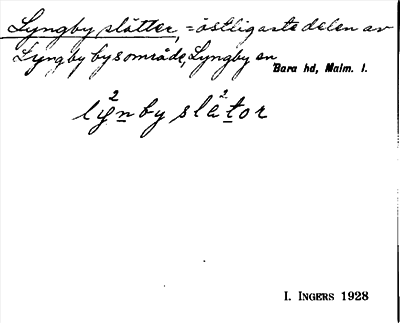 Lyngby slåtter, = östligaste delen av
Lyngby bysområde, Lyngby sn
Bara hd, Malm. l.
lynby slåtor
I. INGERS 1928